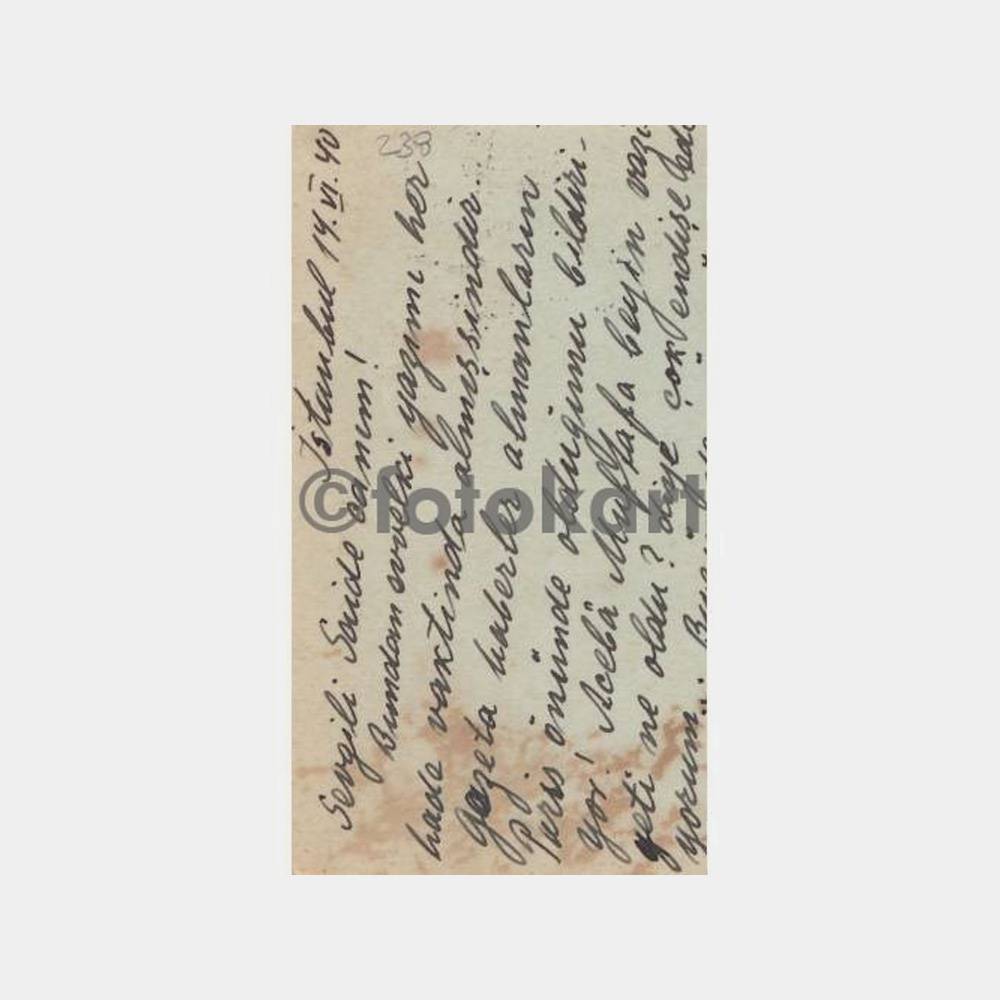 İstanbul 14.VI.40
238
Sevgili Saide
Bundan evvelki yazımı her
halde vaktinda almışsındır...
Gazeta haberler almanların
Paris önünde olduğunu bildiri-
yor! Acebâ Mustafa beyin vazi-
yeti ne oldu? diye çok endişe
yorum.
©fotokart